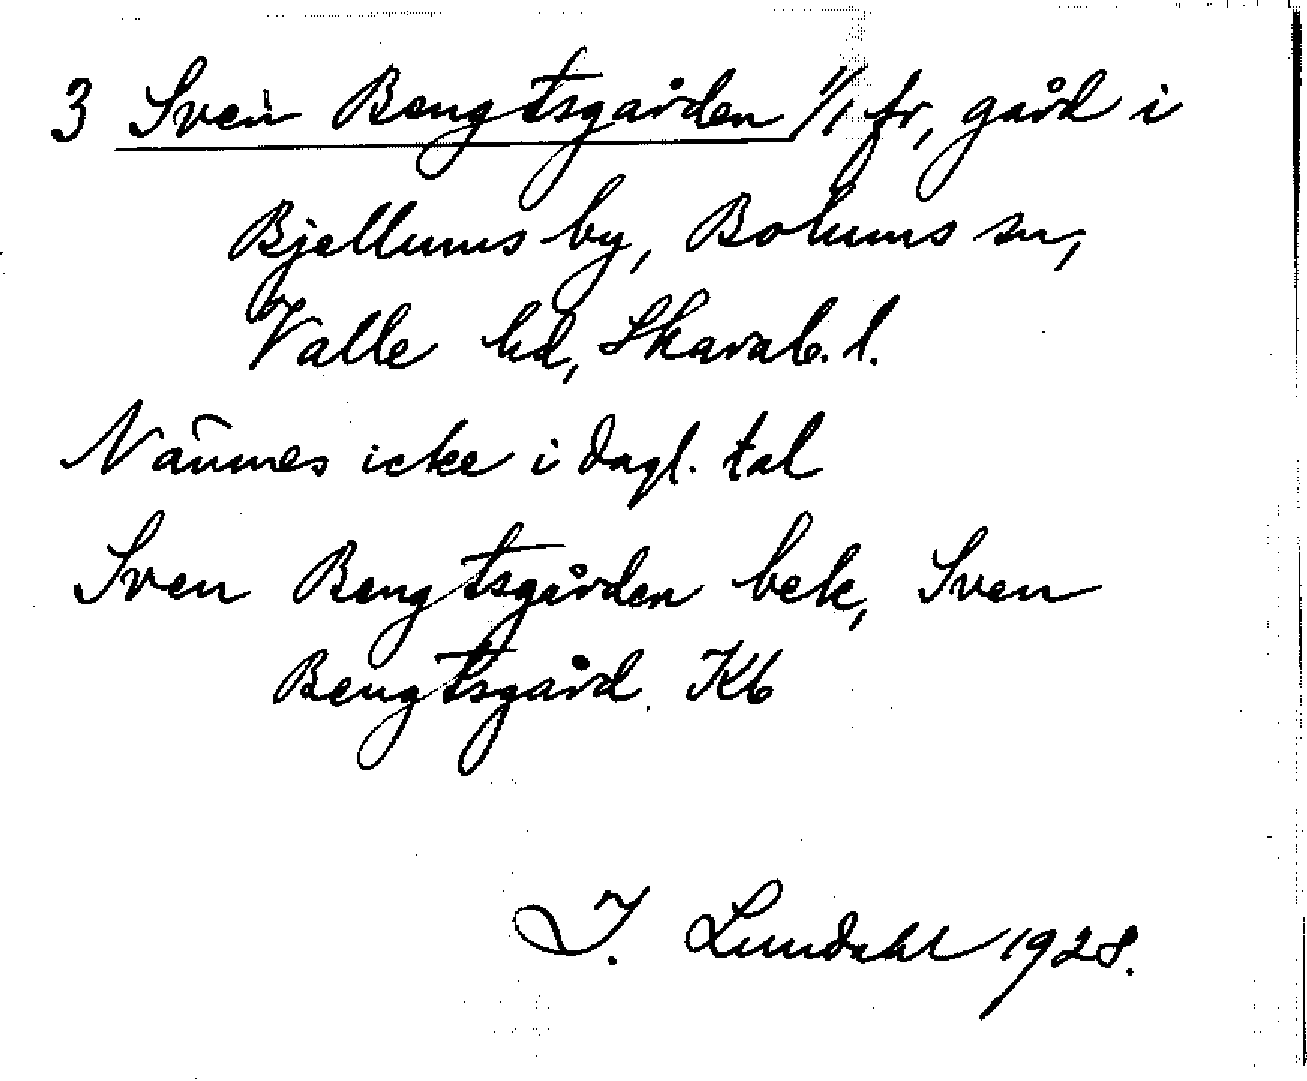 3 Sven Bengtsgården 1/1 fr, gård i
Bjellums by, Bolums sn,
Valle hd, Skarab. l.
Nämnes icke i dagl. tal
Sven Bengtsgården bek, Sven
Bengtsgård Kb
I. Lundahl 1928.